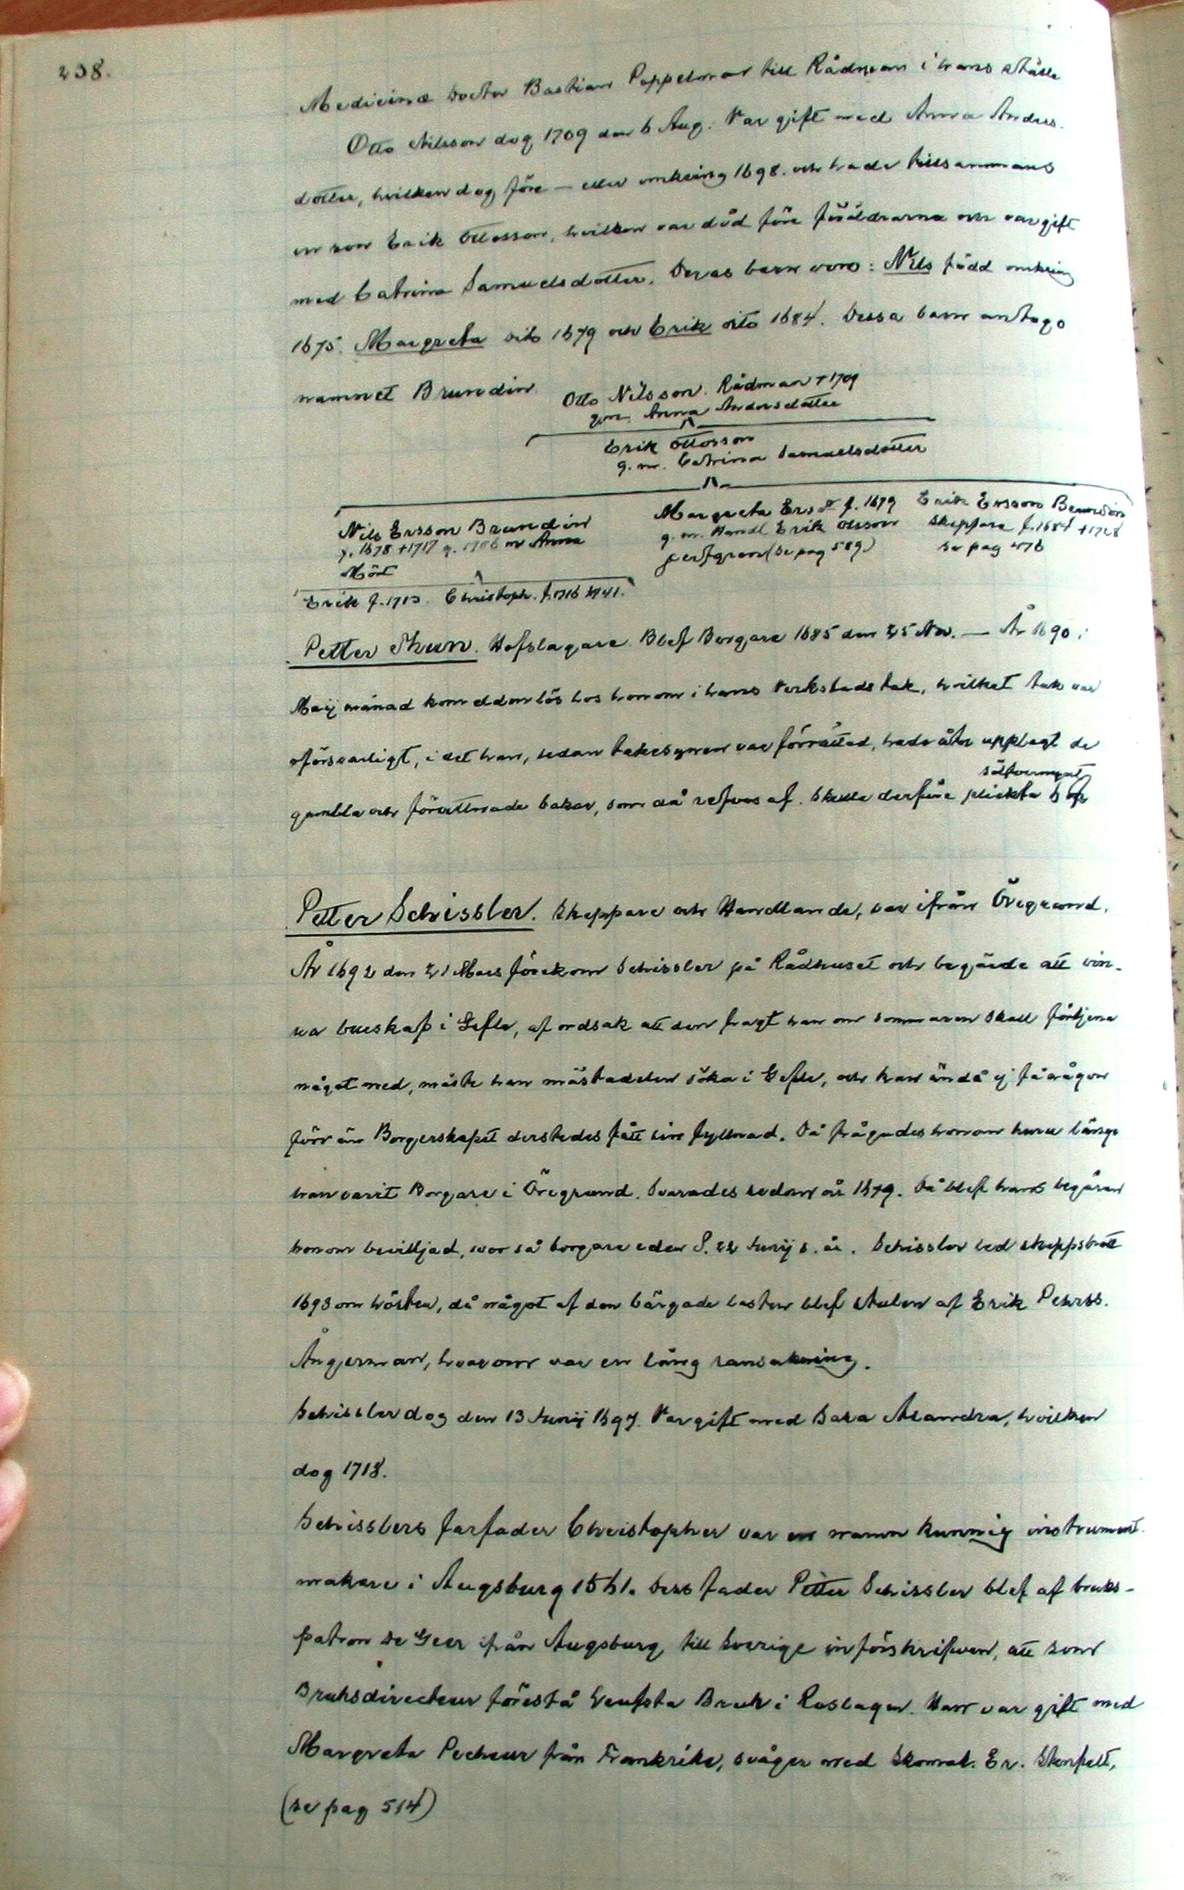 238.
Medicinæ Doctor Bastian Poppelman till Rådman i hans ställe
Otto Nilsson dog 1709 den 6 Aug. Var gift med Anna Anders-
dotter, hvilken dog före — eller omkring 1698. och hade tillsammans
en son Erik Ottosson, hvilken var död före föräldrarna och var gift
med Catrina Samuelsdotter. Deras barn voro: Nils född omkring
1675. Margreta dito 1679 och Erik dito 1684. Dessa barn antogo
namnet Brundin.
Otto Nilsson. Rådman †1709
gm. Anna Andersdotter
Erik Ottosson
g. m. Catrina Samuelsdotter
Nils Ersson Brundin
f. 1678 †1717 g. 1706 m Anna
Mört
Margreta Ersdr f. 1679
g. m. Handl Erik Olsson
(se pag 589)
Erik Ersson Brundin
Skeppare f. 1684 †1728
se pag 476
Erik f. 1713. Christoph. f. 1716 †1741.
Petter Thun. Hofslagare. Blef Borgare 1685 den 25 Nov. — År 1690 i
Maij månad kom elden lös hos honom i hans Verkstads tak, hvilket tak var
oförsvarligt, i det han, sedan taksynen var förrättad, hade åter upplagt de
gambla och förruttnade takar, som då refvos af. Skulle derföre plickta
sölfvermynt
Petter Schissler. Skeppare och Handlande, var ifrån Öregrund.
År 1692 den 21 Mars förekom Schissler på Rådhuset och begärde att vin-
na burskap i Gefle, af ordsak att den fragt han om sommaren skall förtjena
något med, måste han mästadelen söka i Gefle, och kan ändå ej få någon
förr än Borgerskapet derstedes fått sin fyllnad. Då frågades honom huru länge
han varit Borgare i Öregrund. Svarades sedan år 1679. Då blef hans begäran
honom beviljad, svor så borgare eden d. 22 Junij s. år. Schissler led skeppsbrott
1693 om hösten, då något af den bärgade lasten blef stulen af Erik Pehrss.
Ångerman, hvarom var en lång ransakning.
Schissler dog den 13 Junij 1697. Var gift med Sara Alandra, hvilken
dog 1718.
Schisslers farfader Christopher var en namnkunnig instrument
makare i Augsburg 1561. Dess fader Petter Schissler blef af bruks-
patron De Geer ifrån Augsburg till Sverige införskrifven, att som
Bruksdirecteur förestå Leufsta Bruk i Roslagen. Han var gift med
Margreta Pecheur från Frankrike, svåger med Er.
(se pag 514)